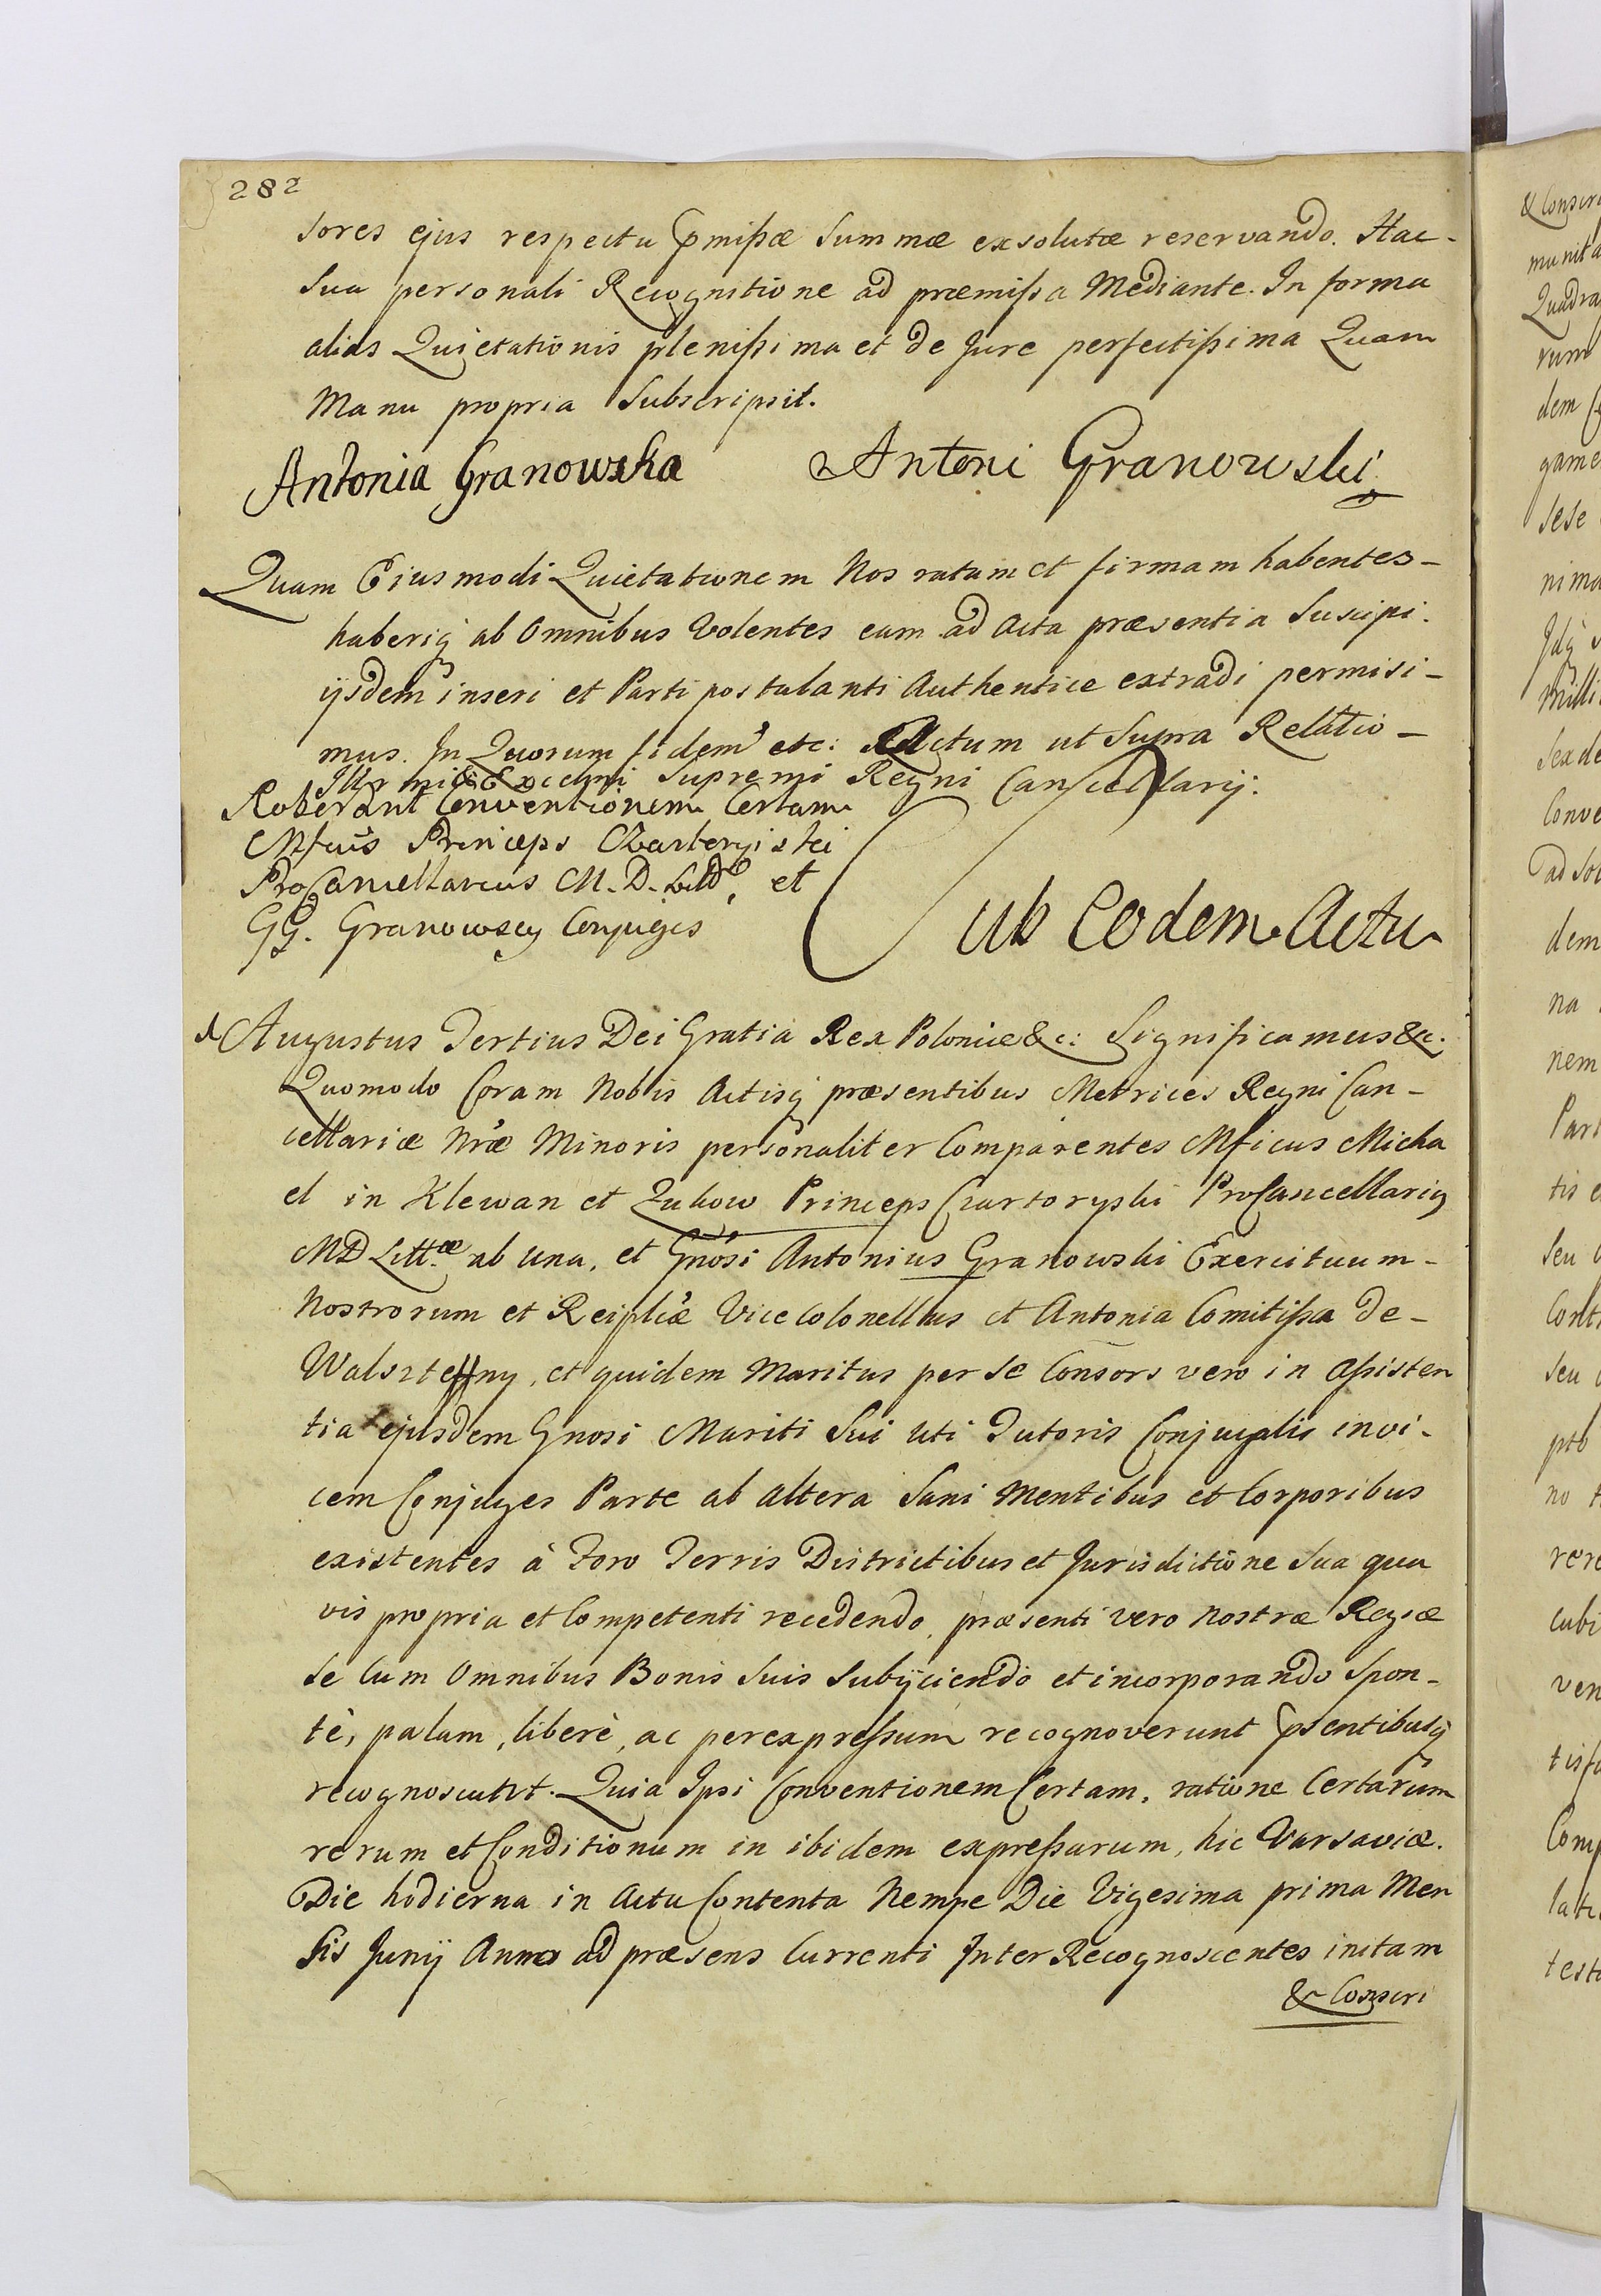 282
sores ejus respectu pmissæ Summæ exsolutæ reservando. Hac-
Sua personali Recognitione ad præmissa Mediante. In forma
alias Quietationis plenissima et de Jure perfectissima Quam
Manu propria Subscripsit.
Antonia Granowska Antoni Granowski
Quam Eiusmodi Quietationem Nos ratam et firmam habentes-
haberiq ab Omnibus Volentes eam ad Acta præsentia Suscipi.
ijsdem inseri et Parti postulanti Authentice extradi permisi-
mus. In Quorum fidem etc: Actum ut Supra Relatio-
Illrmi & Excelmi Supremi Regni Cancellarij.
Roberant Conventionem Certam
Mfcus Princeps Czartoryiski
ProCancellarius M. D. Littd, et
GG. Granowscy Conjuges
Sub Eodem Actu
Augustus Tertius Dei Gratia Rex Poloniæ &c: Significamus &c.
Quomodo Coram Nobis Actisq præsentibus Metrices Regni Can-
cellariæ Nræ Minoris personaliter Comparentes Mficus Micha
el in Klewan et Zukow Princeps Czartoryski ProCancellariq
MD Littæ ab una, et Gnosi Antonius Granowski Exercituum-
Nostrorum et Reiplicæ Vice Colonellus et Antonia Comitissa de-
Walszteyny, et quidem Maritus per se Consors vero in Assisten
tia ejusdem Gnosi Mariti Sui uti Tutoris Conjugalis invi-
cem Conjuges Parte ab altera Sani Mentibus et Corporibus
existentes à Foro Terris Districtibus et Jurisdictione Sua qua
vis propria et Competenti recedendo, præsenti vero Nostræ Regiæ
se Cum Omnibus Bonis Suis Subijciendo et incorporando Spon-
tè, palam, liberè, ac per expressum recognoverunt psentibusq
recognoscunt. Quia Ipsi Conventionem Certam, ratione Certarum
rerum et Conditionum in ibidem expressarum, hic Varsaviæ.
Die hodierna in Actu Contenta Nempe Die Vigesima prima Men
sis Junij Anno ad præsens Currenti Inter Recognoscentes initam
& Conscri